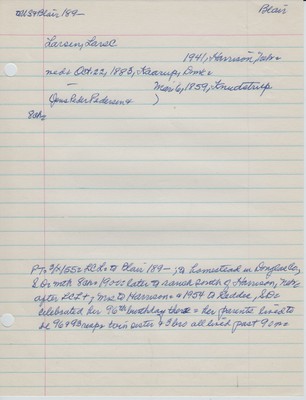 to US & Blair 189-
Blair
Larsen, Lars C.
1941, Harrison, Nebr
neds Oct. 22, 1883, Kaarup, Dmk
— Mar 6, 1859, Knudstrup
Jens Peter Pedersen &
8 ch
PT to Blair 189-, to homestead in Douglas Co,
S.D. with 8 ch 1900 later to ranch south of Harrison, Nebr
after LCL +; Mrs to Harrison & 1954 to S.D.
celebrated her 96th birthday there her parents lived to
be 96 & 93 resp twin sister & 3 bros all lived past 90